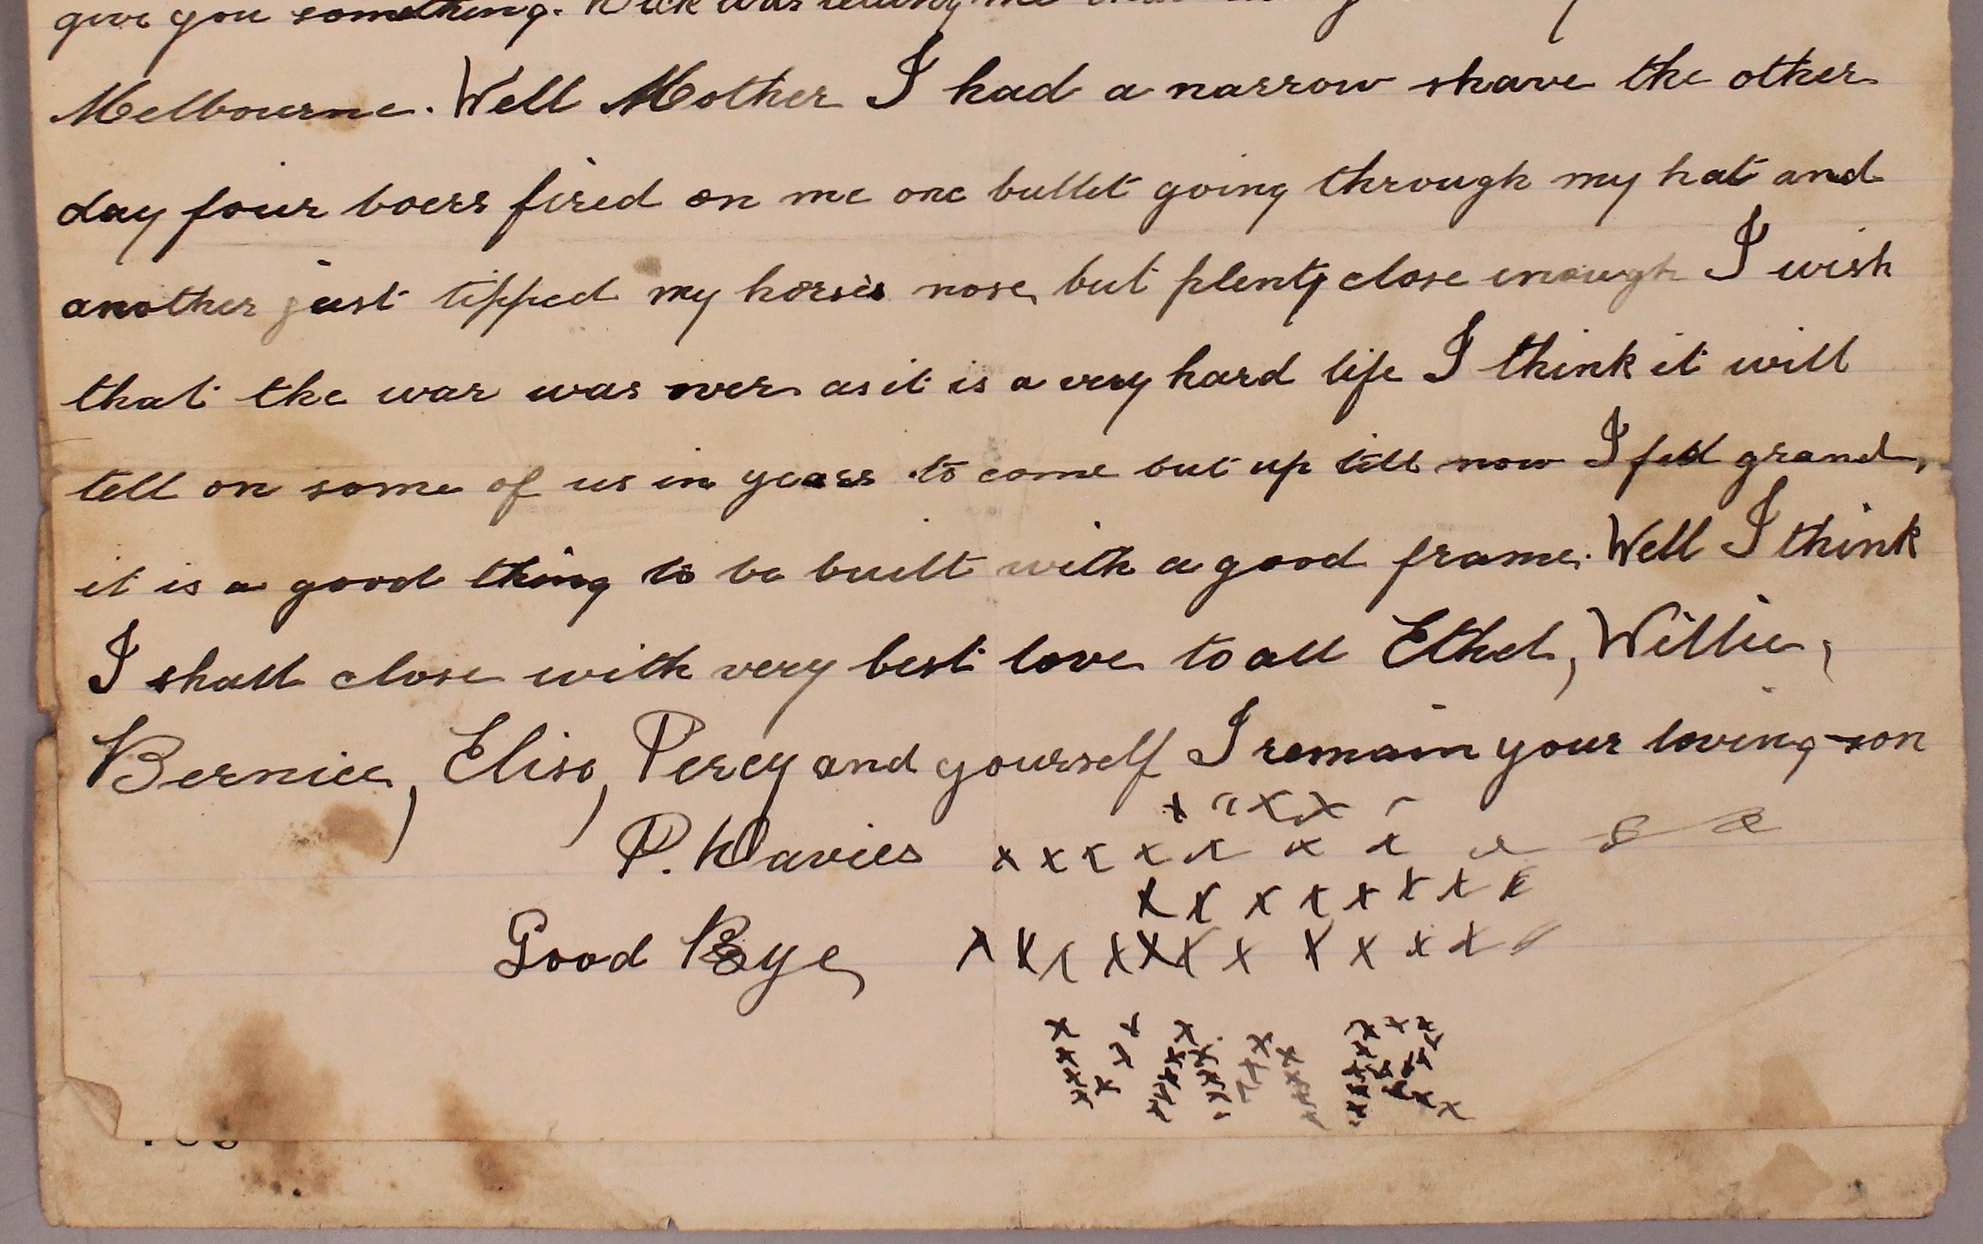 give you something. Dick was telling me that
Melbourne. Well Mother I had a narrow shave the other
day four boers fired on me one bullet going through my hat and
another just tipped my horses nose, but plenty close enough I wish
that the war was over as it is a very hard life I think it will
tell on some of us in years to come but up till now I feel grand,
it is a good thing to be built with a good frame. Well I think
I shall close with very best love to all Ethel, Willie,
Bernice, Elise, Percy and yourself I remain your loving son
P. Davies x x x x x
x x x x x x x x
x x x x x x x x
Good Bye, x x x x x x x x x x x